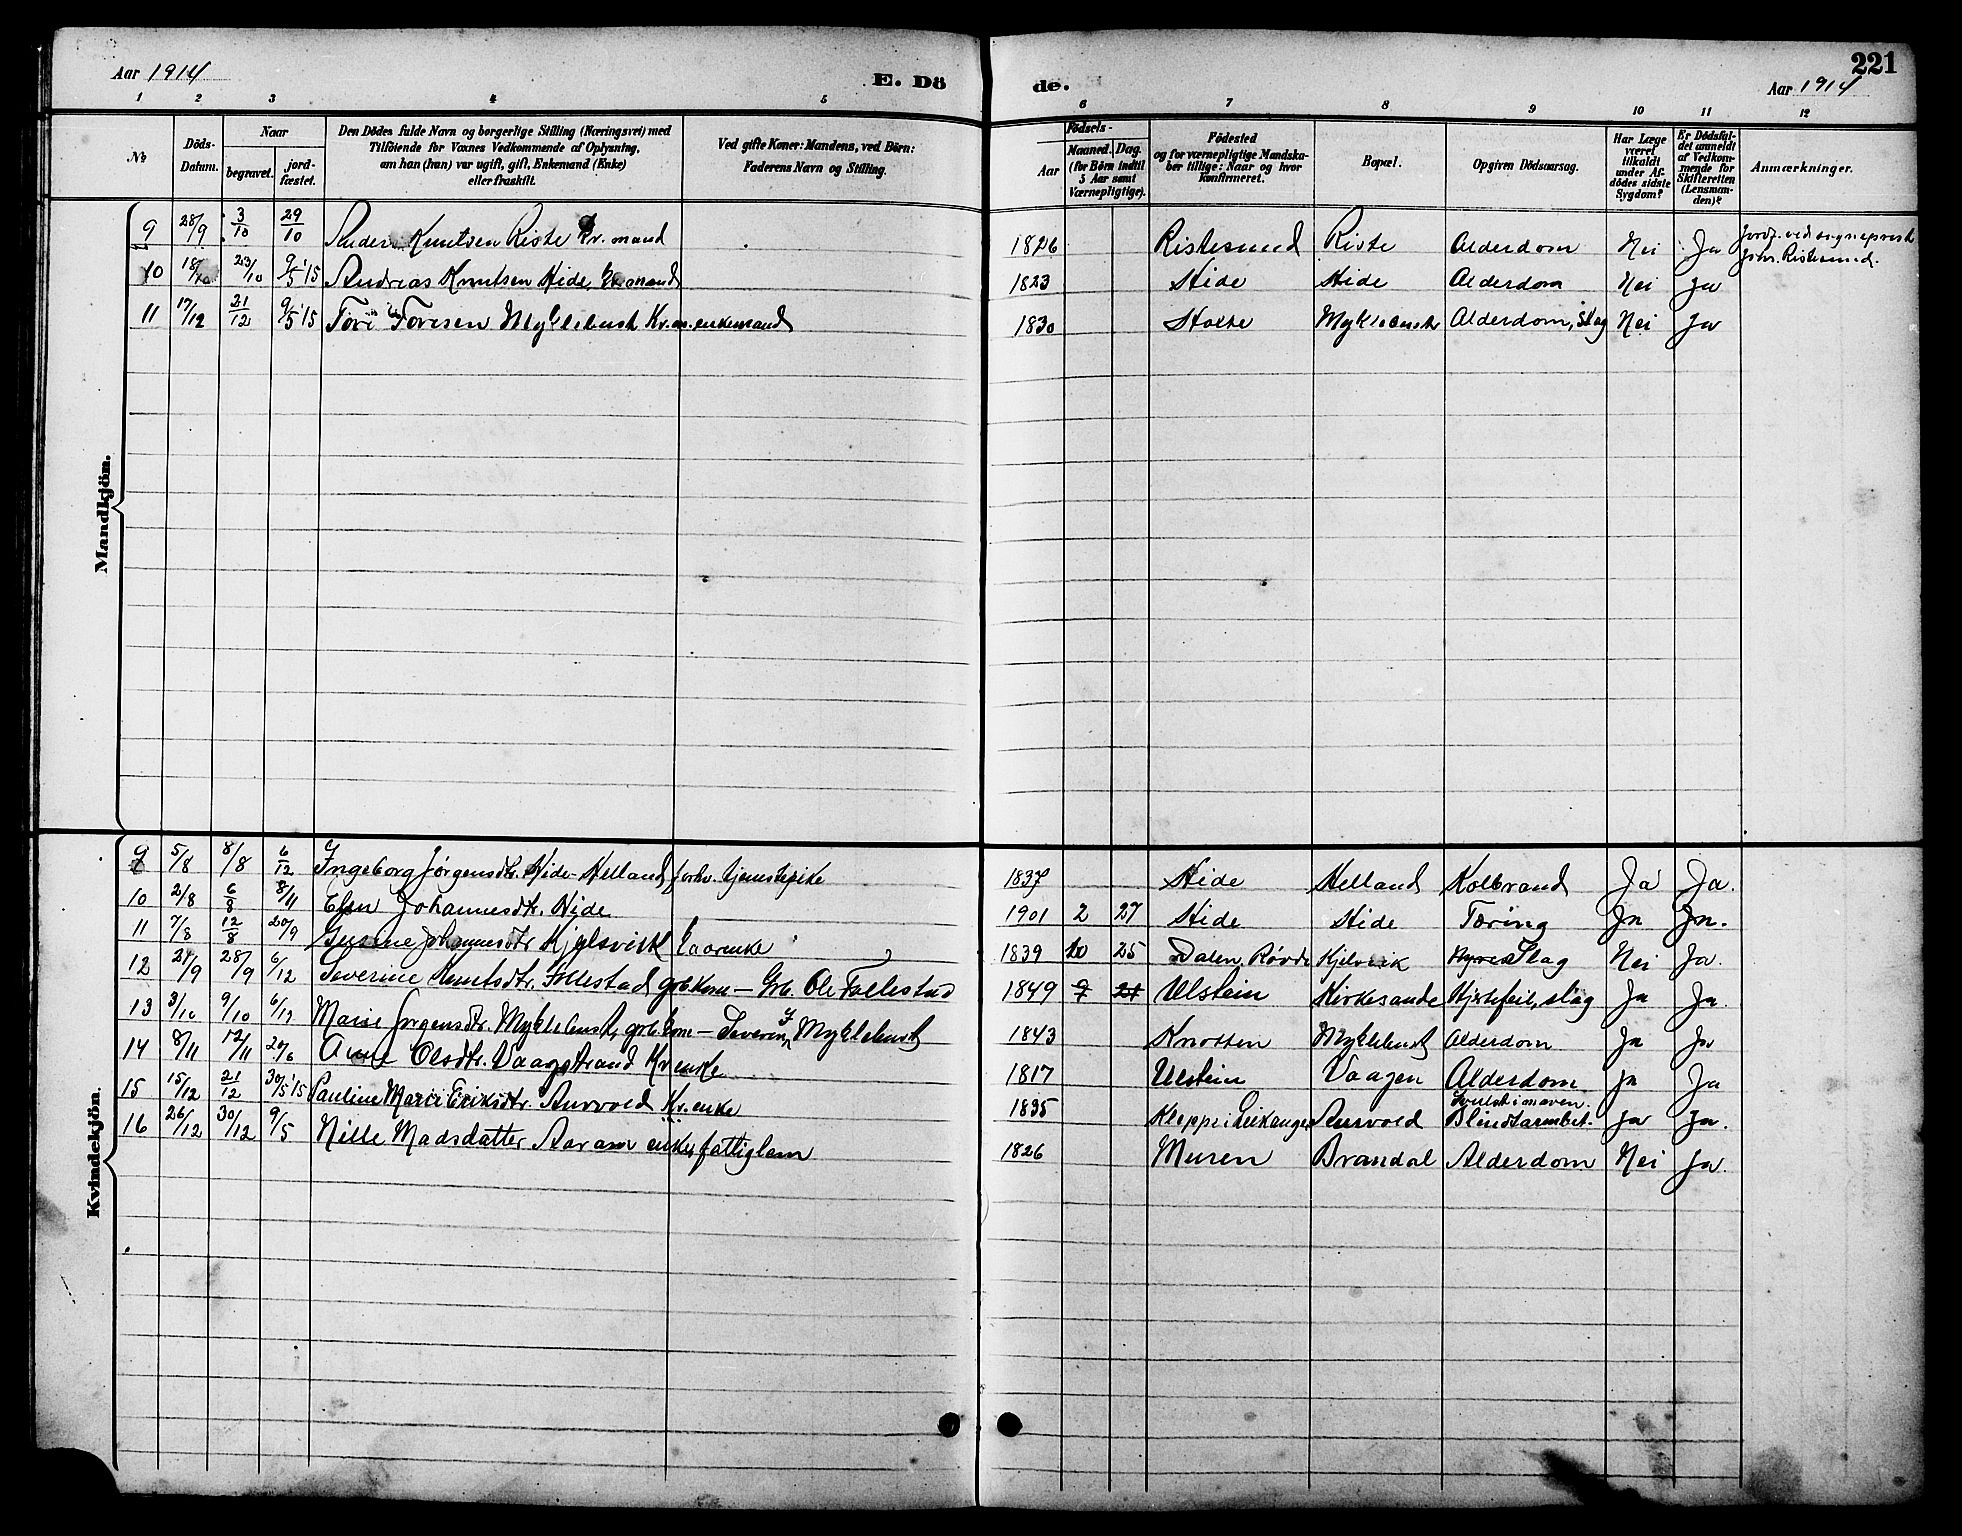 Aar 1914
E. Dö
de.
221
Aar 1914
1 2 3 4 5 6 7 8 9 10 11 12
No
Döds-Datum.
Naar
begravet.
jord-fæstet.
Den Dödes fulde Navn og borgerlige Stilling (Næringsvei) med
Tilföiende for Voxnes Vedkommende af Oplysning,
om han (hun) var ugift, gift, Enkemand (Enke)
eller fraskilt.
Ved gifte Koner: Mandens, ved Börn:
Faderens Navn og Stilling.
Födsels-
Aar
Maaned. Dag.
(for Börn indtil
5 Aar samt
Værnepligtige).
Födested
og for værnepligtige Mandska-
ber tillige: Naar og hvor
konfirmeret.
Bopæl.
Opgiven Dödsaarsag.
Har Læge
været
tilkaldt
under Af-
dödes sidste
Sygdom?
Er Dödsfal-
det anmeldt
af Vedkom-
mende for
Skifteretten
(Lensman-
den)?
Anmærkninger.
Mandkjön.
9 28/9 3/10 29/10 Anders Knutsen Riste kv. mand 1826 Ristesund Riste Alderdom Nei Ja Jordf. ved sogneprest
Johs. Ristesund.
10 18/10 23/10 9/5 '15 Andreas Knutsen Hide, mand 1823 Hide Hide Alderdom Nei Ja
11 17/12 21/12 9/5 '15 Tore Toresen Myklebust Kv.m. enkemand 1830 Myklebust Alderdom, slag Nei Ja
Kvindekjön.
9 5/8 8/8 6/12 Ingeborg Jørgensdtr. Hide-Helland forhv. tjenestepike 1837 Hide Helland Koldbrand Ja Ja.
10 2/8 6/8 8/11 Elen Johannesdtr. Hide 1901 2 27 Hide Hide Tæring Ja Ja.
11 7/8 12/8 20/9 Johannesdtr Kjelsvik 1839 10 25 Dalen, Røvde Kjelsvik Slag Nei Ja.
12 24/9 28/9 6/12 Severine Knutsdtr. Follestad grbkone – Grb. Ole Follestad 1849 9 21 Ulstein Kirkesande Hjertefeil, slag Ja Ja.
13 3/10 9/10 6/12 Marie Jørgensdtr. Myklebust, grbkone – Severin J. Myklebust 1843 Knotten Myklebust Alderdom Ja Ja
14 8/11 12/11 20/6 Anne Olsdtr. Vaagstrand Kv. enke 1817 Ulstein Vaagen Alderdom Ja Ja
15 15/12 21/12 30/5 '15 Pauline Marie Eriksdtr. Aurvold Kv. enke 1835 Kleppe i Leikanger Aurvold Svulst i maven.
Blindtarmbet. Ja Ja.
16 26/12 30/12 9/5 Nille Madsdatter Aaram enke, fattiglem 1826 Muren Brandal Alderdom Nei Ja.